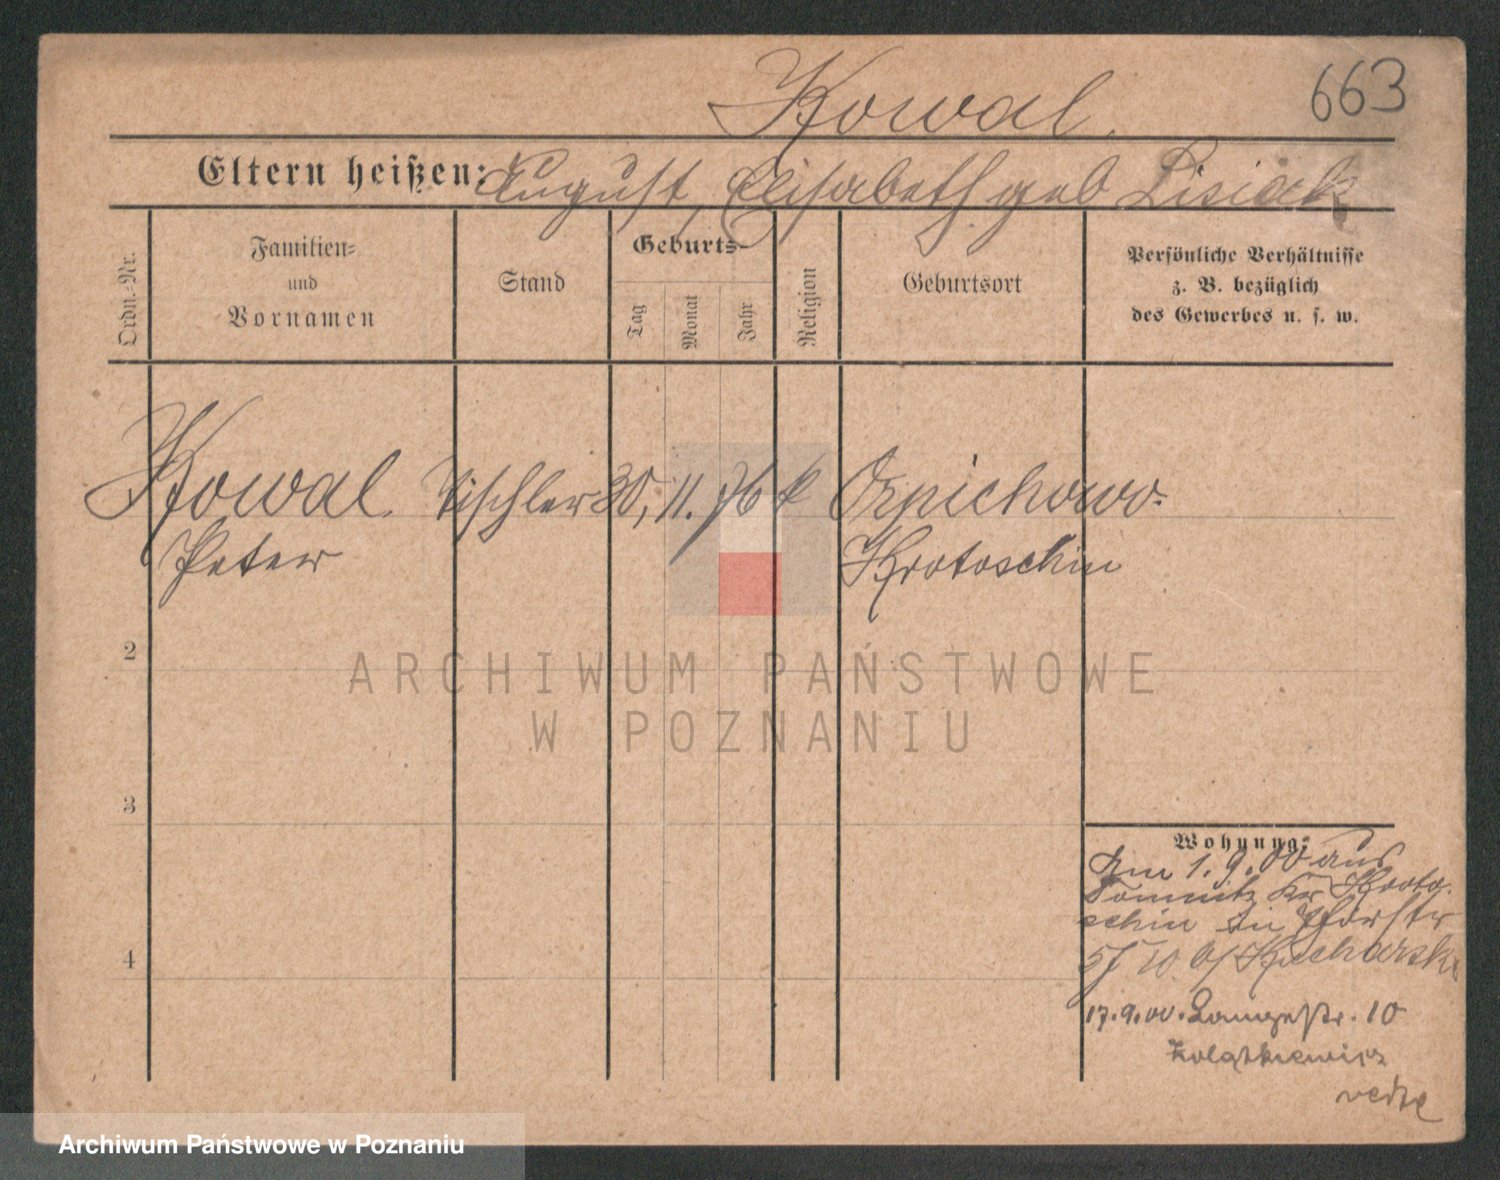 663
Kowal.
Eltern heißen: August, Elisabeth geb Lisiak
Ordn.-Nr.
Familien- und Vornamen
Stand
Geburts-
Tag
Monat
Jahr
Religion
Geburtsort
Persönliche Verhältnisse
z. B. bezüglich
des Gewerbes u. s. w.
Kowal. Tischler 30, 11. 76 k Orpichowo-
Peter Krotoschin
2
ARCHIWUM PAŃSTWOWE
W POZNANIU
3
Wohnung:
Am 1.9.00 aus
Tomnitz Kr Kroto-
schin
4
57 10 b/ Kucharski
17.9.00. Langestr. 10
Archiwum Państwowe w Poznaniu